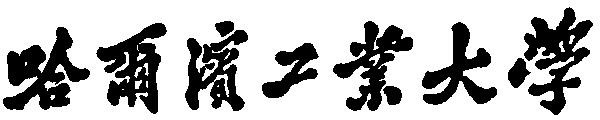 哈爾濱工業大學